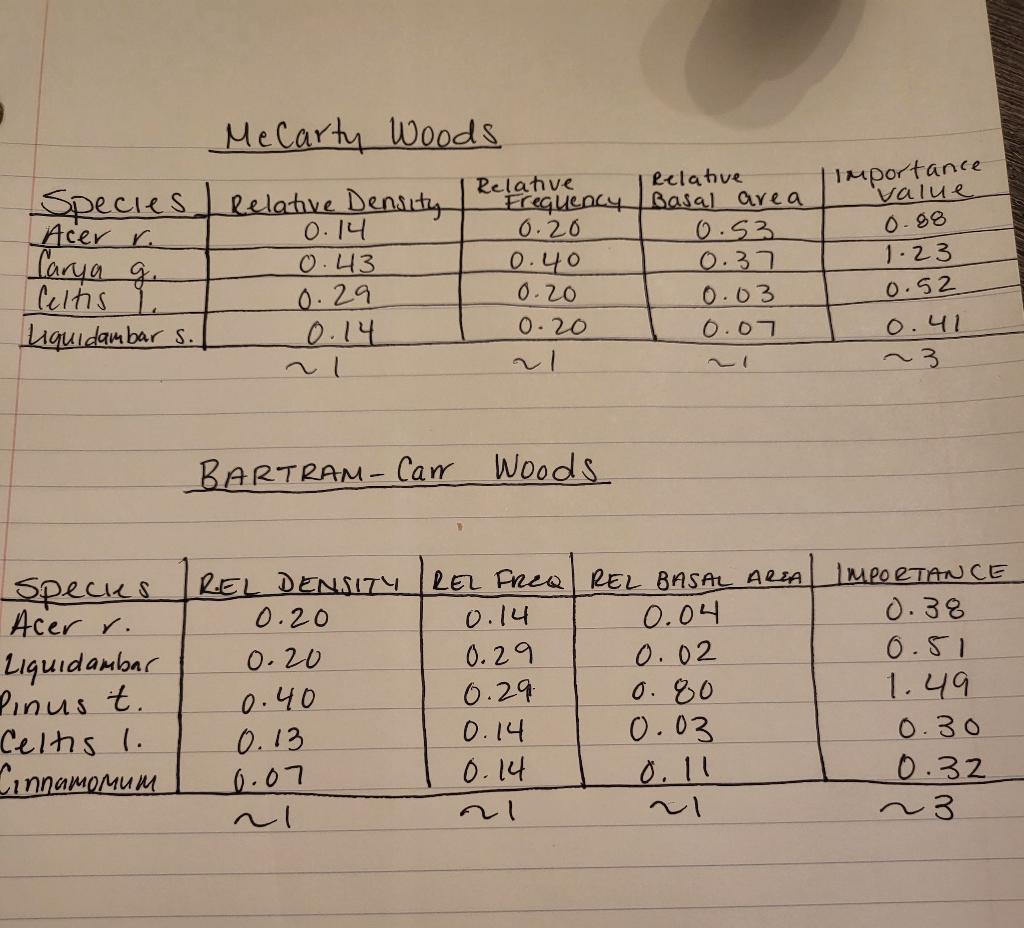 McCarty Woods
Species | Relative Density | Relative Frequency | Relative Basal area | Importance value
Acer r. | 0.14 | 0.20 | 0.53 | 0.88
Carya g. | 0.43 | 0.40 | 0.37 | 1.23
Celtis l. | 0.29 | 0.20 | 0.03 | 0.52
Liquidambar s. | 0.14 | 0.20 | 0.07 | 0.41
~1 ~1 ~1 ~3
BARTRAM-Carr Woods
Species | REL DENSITY | REL FREQ | REL BASAL AREA | IMPORTANCE
Acer r. | 0.20 | 0.14 | 0.04 | 0.38
Liquidambar | 0.20 | 0.29 | 0.02 | 0.51
Pinus t. | 0.40 | 0.29 | 0.80 | 1.49
Celtis l. | 0.13 | 0.14 | 0.03 | 0.30
Cinnamomum | 0.07 | 0.14 | 0.11 | 0.32
~1 ~1 ~1 ~3